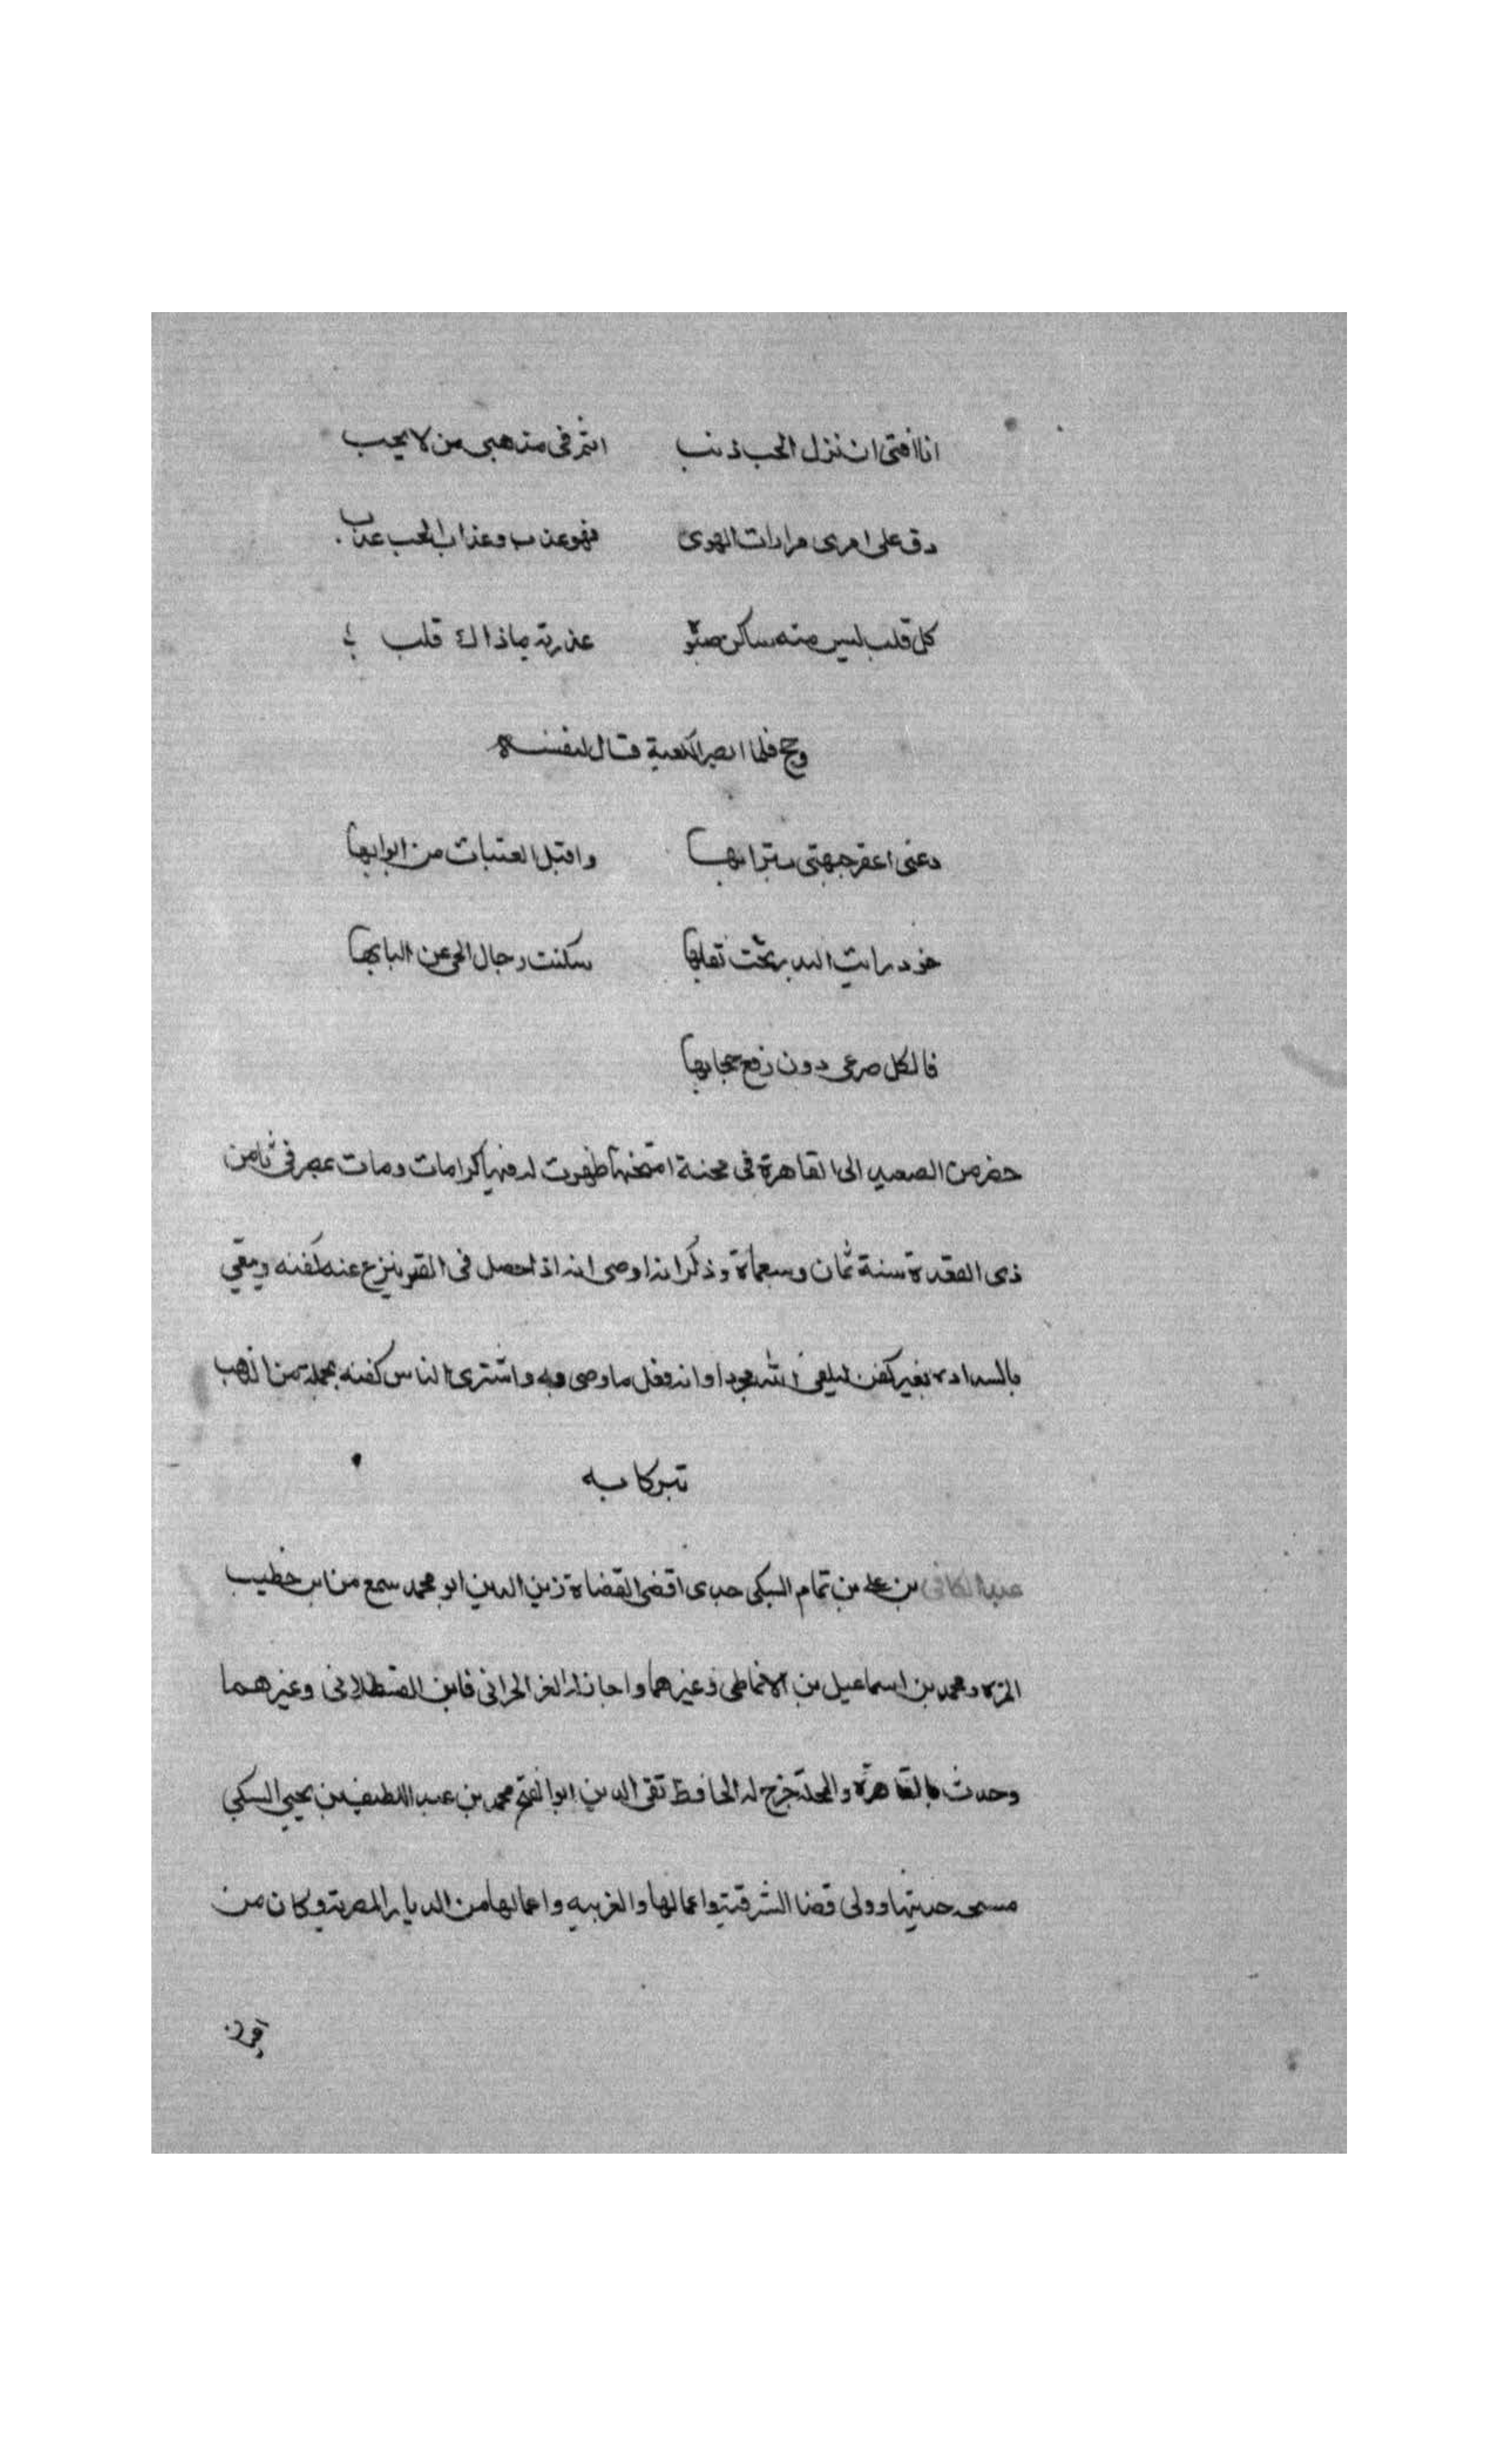 انا افتى ان نزل الحب ذنب اثم فى مذهبى من لا يحب
دق على امرى مرارات الهوى فهو عذب وعذاب الحب عذب
كل قلب ليس منه ساكن صبوة عذرية ماذاك قلب
وحج فلما ابصر الكعبة قال لنفسه
دعنى اعفر جبهتى بترابها واقبل العتبات من ابوابها
خود رايت البدر تحت نقابها سكنت رجال الحى عن البابها
فالكل صرعى دون رفع حجابها
حضر من الصعيد الى القاهرة فى محنة امتحنها ظهرت له فيها كرامات ومات بمصر فى ثامن
ذى القعدة سنة ثمان وسبعماة وذكر انه اوصى انه اذا حصل فى القبر ينزع عنه كفنه ويبقى
بغير كفن ليلقى الله مجردا وانه فعل ما وصى به واشترى الناس كفنه بجملة من الذهب
تبركا به
عبد الكافى بن على بن تمام السبكى جدى اقضى القضاة زين الدين ابو محمد سمع من ابن خطيب
المزه ومحمد بن اسماعيل بن الانماطى وغيرهما واجاز له العز الحرانى وابن القسطلانى وغيرهما
وحدث بالقاهرة والمحلة خرج له الحافظ تقى الدين ابوا الفتح محمد بن عبد اللطيف بن يحيى السبكى
حديثها وولى قضا الشرقية واعمالها والغربيه واعمالها من الديار المصرية وكان من